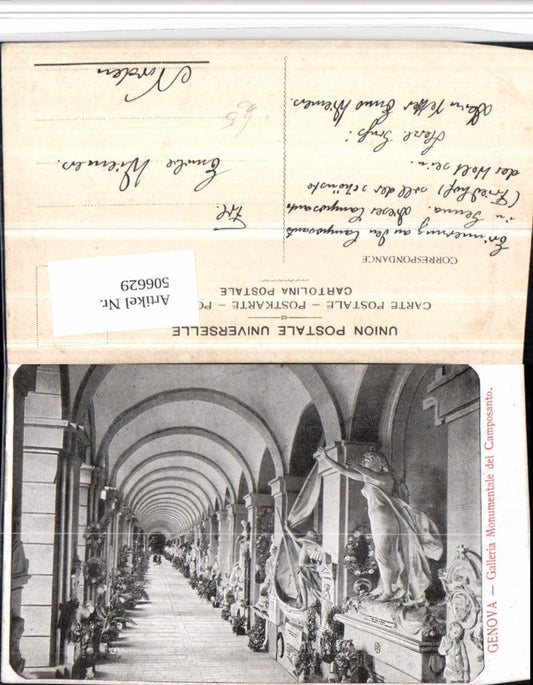 UNION POSTALE UNIVERSELLE
CARTE POSTALE – POSTKARTE – PO
CARTOLINA POSTALE
CORRESPONDANCE
Erinnerung an den Camposanto
in Genua. Dieser Camposanto
(Friedhof) soll der schönste
der Welt sein.
Herzl. Gruß!
Vetter Enno Wiemers.
Artikel Nr.
506629
Frl.
Emilie Wiemers.
Norden
GENOVA — Galleria Monumentale del Camposanto.